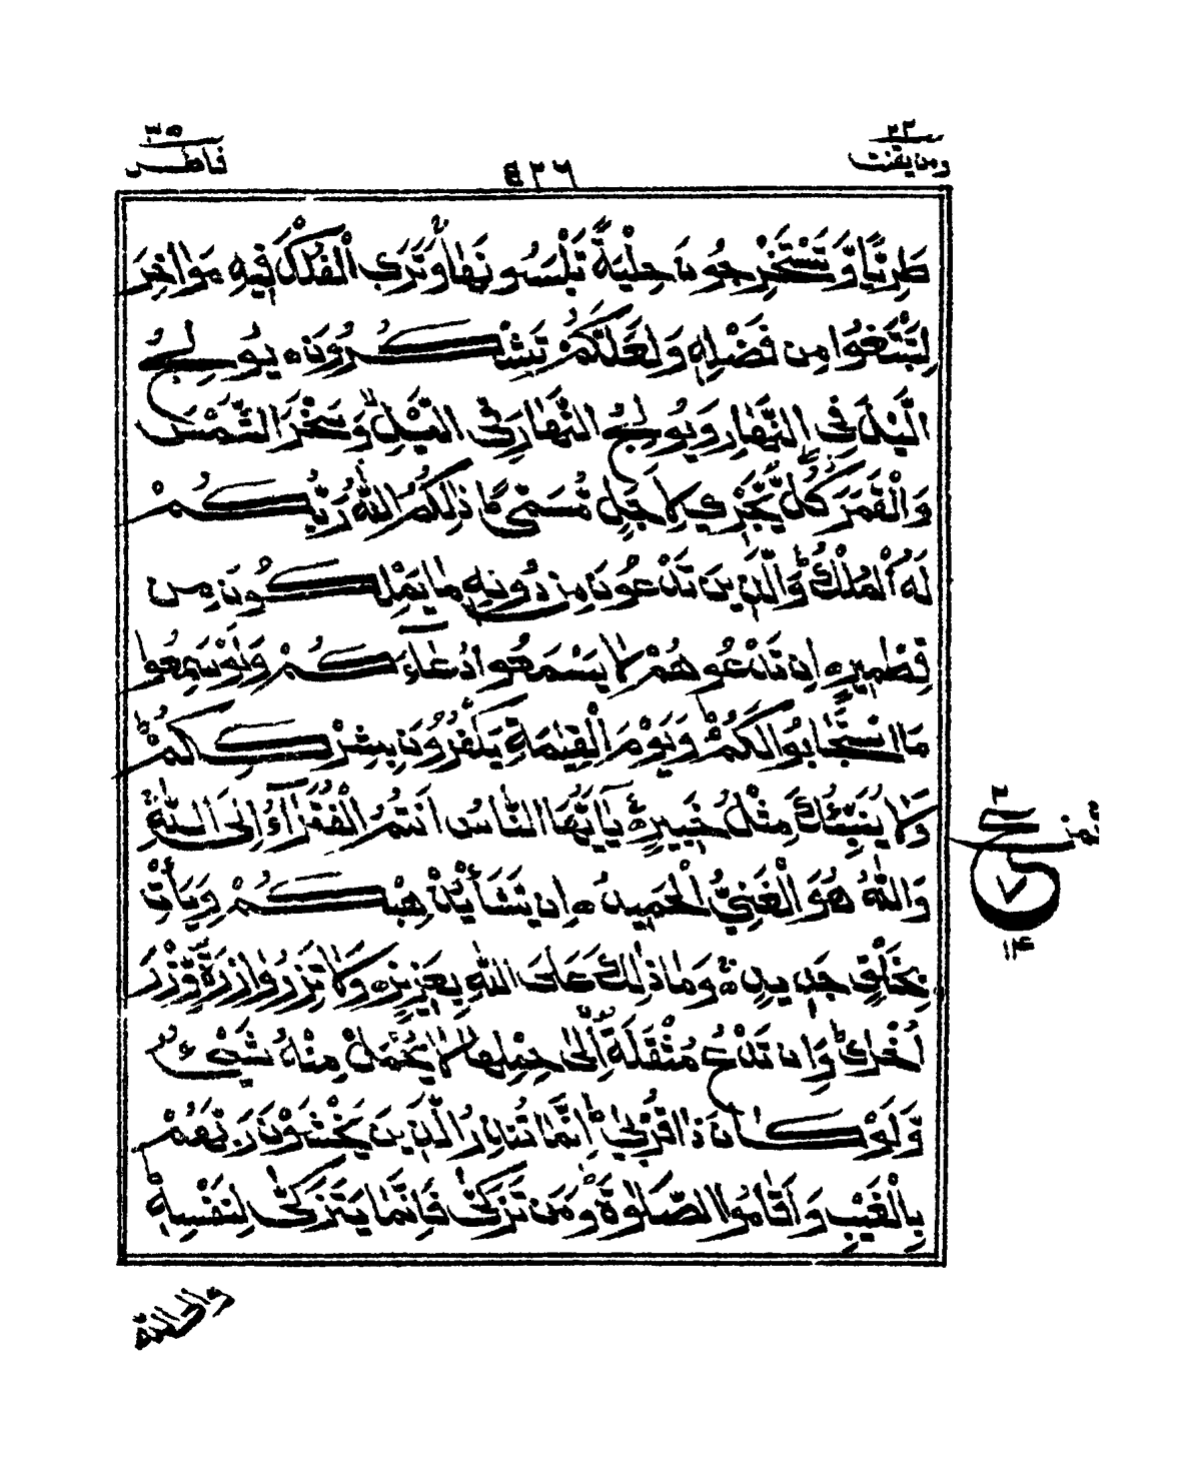 ٢٢
ومن يقنت
٤٢٦
٣٥
فاطر
طَرِيًّا وَّتَسْتَخْرِجُوْنَ حِلْيَةً تَلْبَسُوْنَهَا وَتَرَى الْفُلْكَ فِيْهِ مَوَاخِرَ
لِتَبْتَغُوْا مِنْ فَضْلِهٖ وَلَعَلَّكُمْ تَشْكُرُوْنَ ۝ يُوْلِجُ
الَّيْلَ فِي النَّهَارِ وَيُوْلِجُ النَّهَارَ فِي الَّيْلِ وَسَخَّرَ الشَّمْسَ
وَالْقَمَرَ كُلٌّ يَّجْرِيْ لِاَجَلٍ مُّسَمًّى ذٰلِكُمُ اللّٰهُ رَبُّكُمْ
لَهُ الْمُلْكُ وَالَّذِيْنَ تَدْعُوْنَ مِنْ دُوْنِهٖ مَا يَمْلِكُوْنَ مِنْ
قِطْمِيْرٍ ۝ اِنْ تَدْعُوْهُمْ لَا يَسْمَعُوْا دُعَآءَكُمْ وَلَوْ سَمِعُوْا
مَا اسْتَجَابُوْا لَكُمْ وَيَوْمَ الْقِيٰمَةِ يَكْفُرُوْنَ بِشِرْكِكُمْ
وَلَا يُنَبِّئُكَ مِثْلُ خَبِيْرٍ ۝ يٰٓاَيُّهَا النَّاسُ اَنْتُمُ الْفُقَرَآءُ اِلَى اللّٰهِ
وَاللّٰهُ هُوَ الْغَنِيُّ الْحَمِيْدُ ۝ اِنْ يَّشَاْ يُذْهِبْكُمْ وَيَاْتِ
بِخَلْقٍ جَدِيْدٍ ۝ وَمَا ذٰلِكَ عَلَى اللّٰهِ بِعَزِيْزٍ ۝ وَلَا تَزِرُ وَازِرَةٌ وِّزْرَ
اُخْرٰى وَاِنْ تَدْعُ مُثْقَلَةٌ اِلٰى حِمْلِهَا لَا يُحْمَلْ مِنْهُ شَيْءٌ
وَّلَوْ كَانَ ذَا قُرْبٰى اِنَّمَا تُنْذِرُ الَّذِيْنَ يَخْشَوْنَ رَبَّهُمْ
بِالْغَيْبِ وَاَقَامُوا الصَّلٰوةَ وَمَنْ تَزَكّٰى فَاِنَّمَا يَتَزَكّٰى لِنَفْسِهٖ
ع
٧
١٤